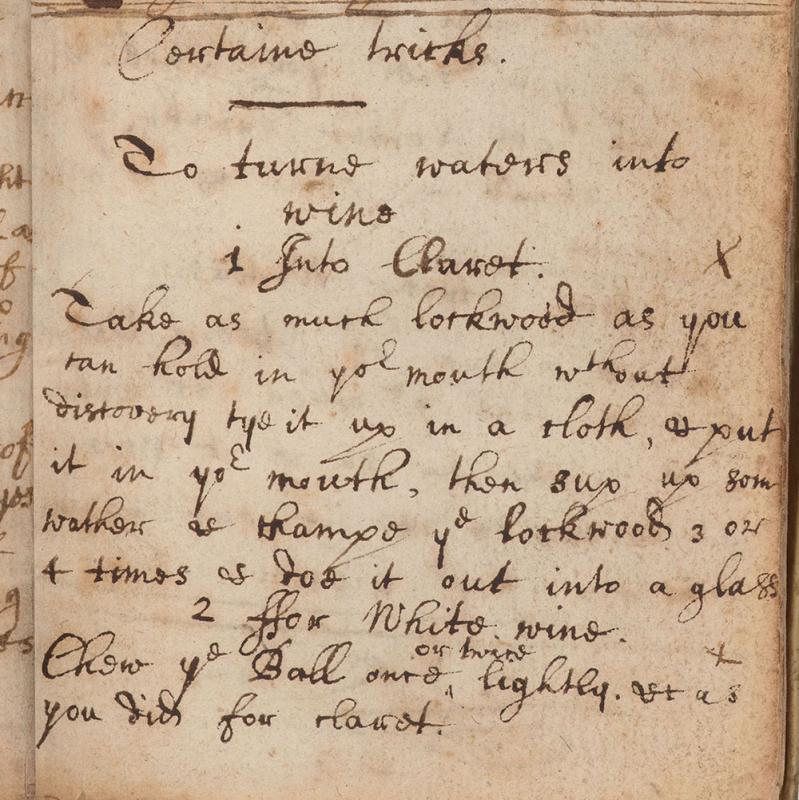 Certaine tricks.
To turne waters into
wine
1 Into Claret. X
Take as much lockwood as you
can hold in yor mouth wthout
discovery tye it up in a cloth, & put
it in yor mouth, then sup up som
wather & champe ye lockwood 3 or
4 times & doe it out into a glass
2 ffor White wine.
Chew ye Ball once or twice lightly. &c as +
you did for claret.